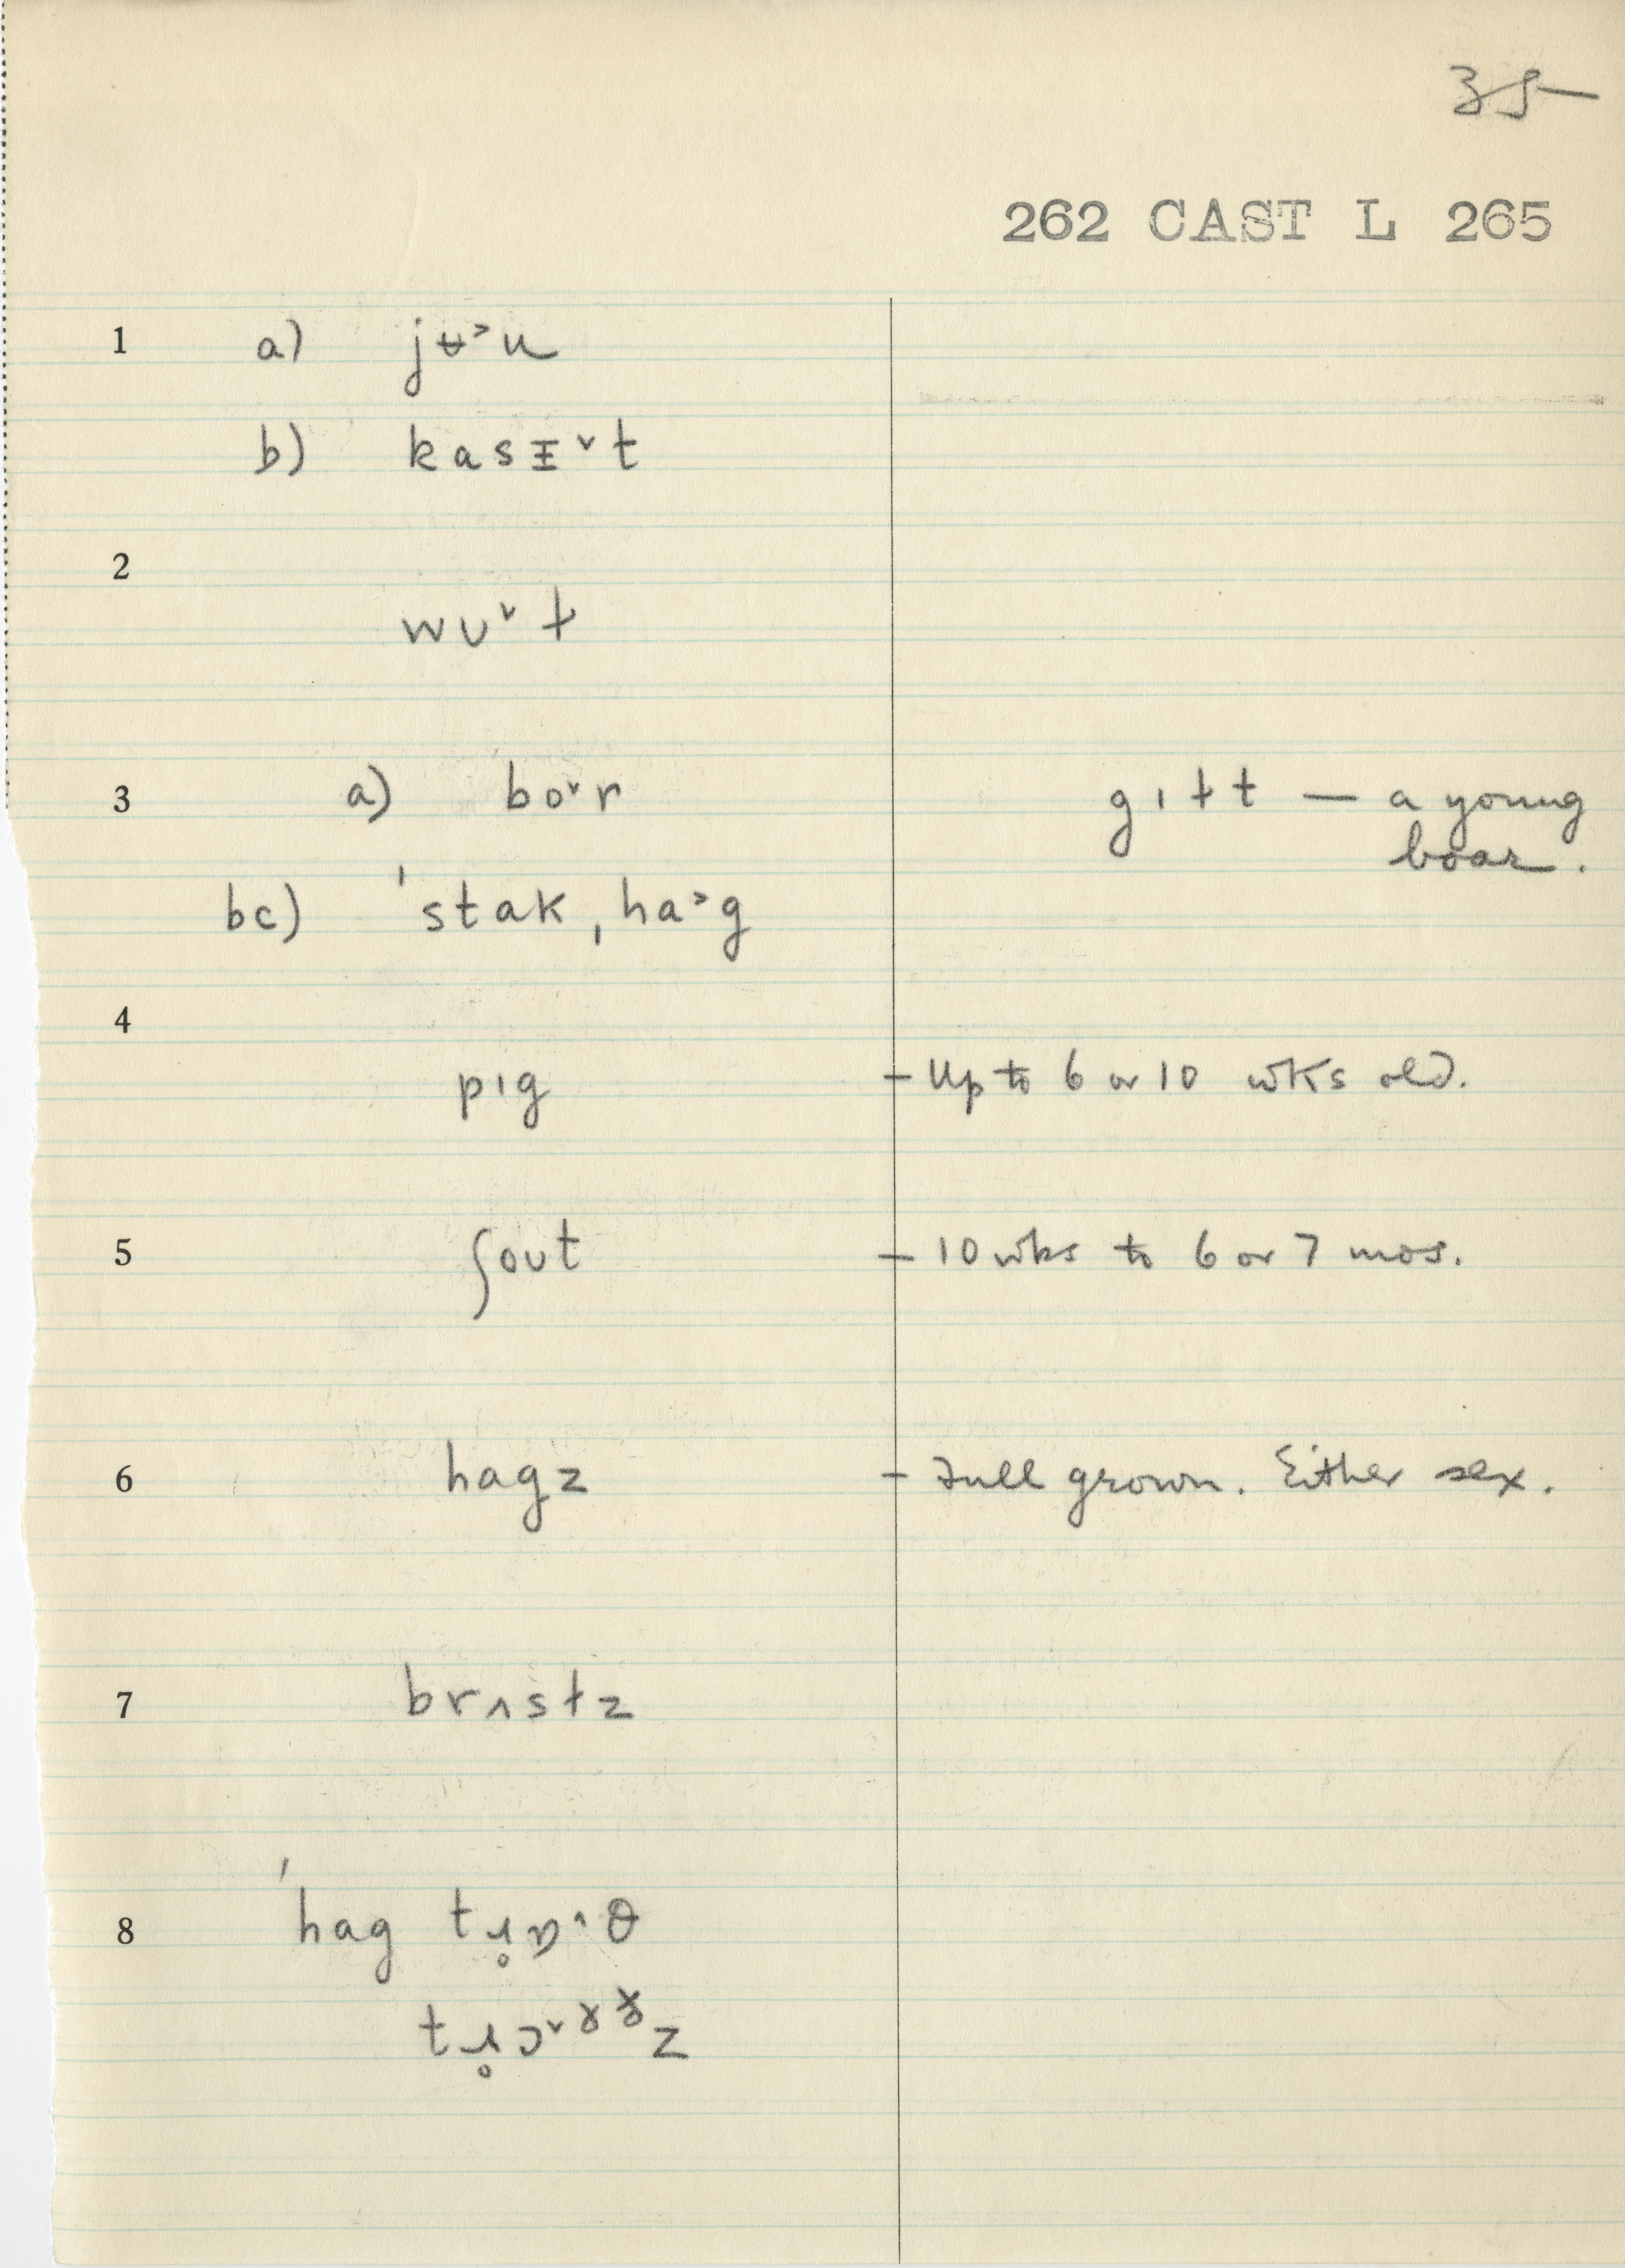 35
262 CAST L 265
1 a) jʉ˃u
b) kasᵻ˅t
2
wʊ˅ɫ
3 a) bo˅r gɪɫt — a young
boar.
bc) ˈstak, ha˃g
4
pɪg – Up to 6 or 10 wks old.
5 ʃoʊt – 10 wks to 6 or 7 mos.
6 hagz – Full grown. Either sex.
7 brʌsɫz
8 ˈhag